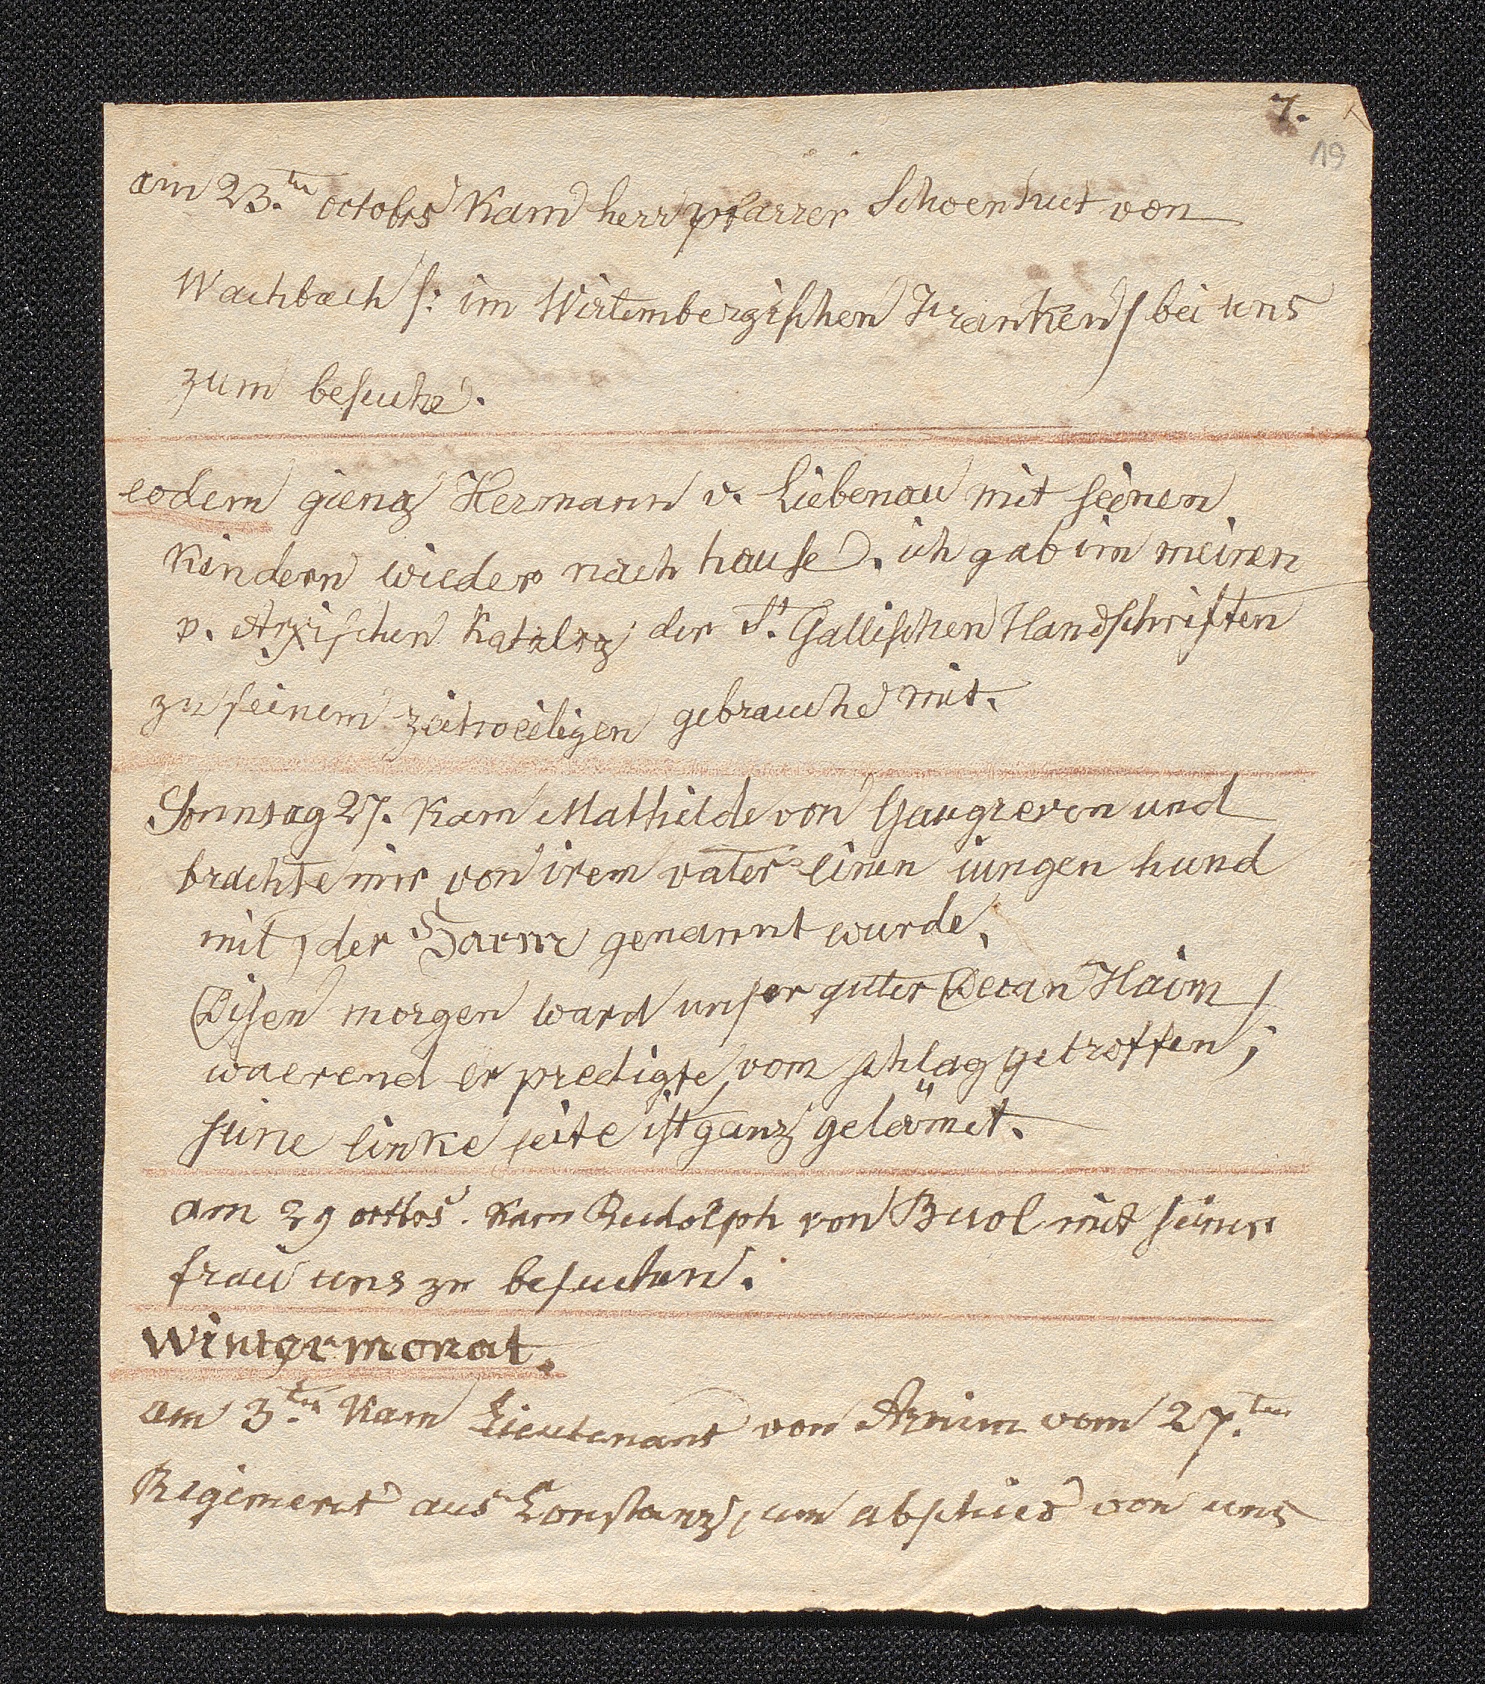 7.
19
am 23.ten octobrs kam herr pfarrer Schoenhut von
Wachbach /: im Wirtembergischen Franken / bei uns
zum besuche.
eodem gieng Hermann v. Liebenau mit seinen
kindern wieder nach hause. ich gab im meinen
v. Arxischen Katalog der St. Gallischen Handschriften
zu seinem zeitweiligen gebrauche mit.
Sonntag 27. kam Mathilde von Gaugreven und
brachte mir von irem vater einen iungen hund
mit, der Harm genannt wurde.
Disen morgen ward unser guter Decan Haim /
waerend er predigte, vom schlag getroffen;
seine linke seite ist ganz gelämet.
am 29 octbrs. kam Rudolph von Buol mit seiner
frau uns zu besuchen.
Wintermonat.
am 3.ten kam Lieutenant von Arnim vom 27.ten
Regiment aus Constanz, um abschied von uns